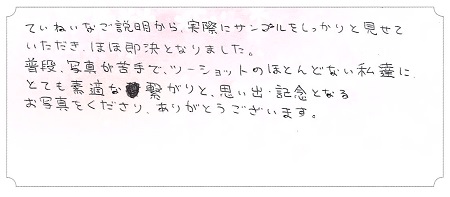 ていねいなご説明から、実際にサンプルをしっかりと見せて
いただき、ほぼ即決となりました。
普段、写真が苦手で、ツーショットのほとんどない私達に
とても素適な繋がりと、思い出・記念となる
お写真をくださり、ありがとうございます。